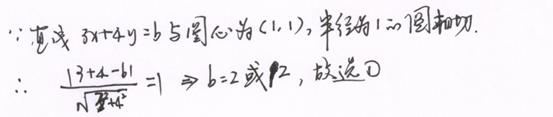 ∵直线 3x+4y=b与圆心为(1,1),半径为1的圆相切.
∴ |3+4-b|/√(3²+4²) =1 ⇒ b=2或12,故选D